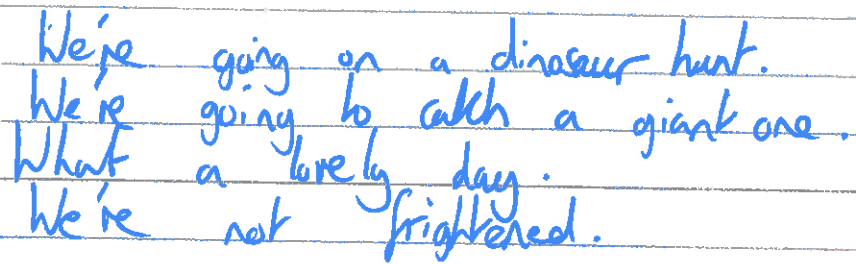 We're going on a dinosaur hunt.
We're going to catch a giant one.
What a lovely day.
We're not frightened.